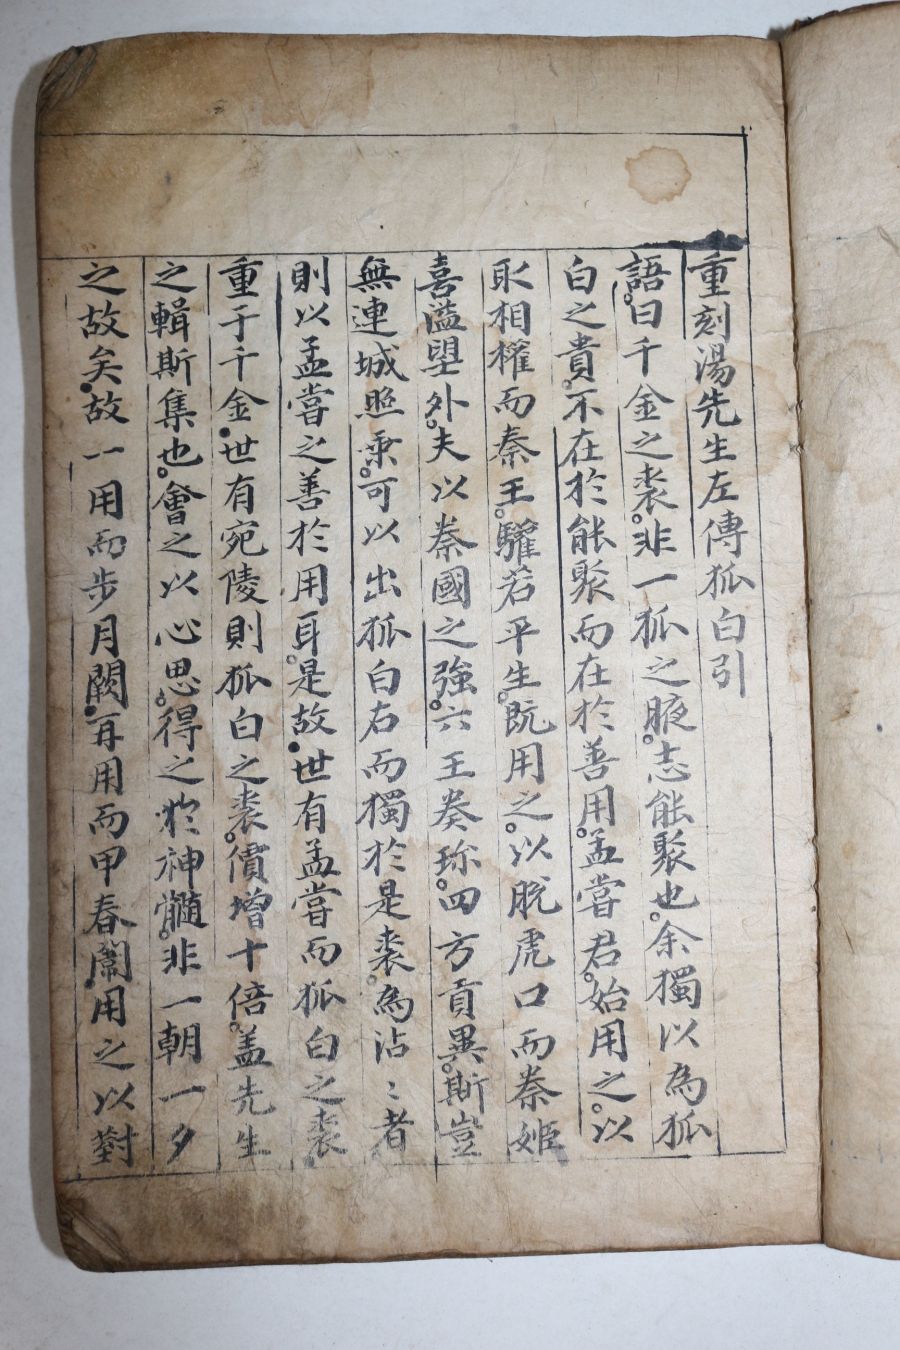 重刻湯先生左傳狐白引
語。曰千金之裘。非一狐之腋。志能聚也。余獨以為狐
白之貴。不在於能聚而在於善用。孟嘗君。始用之。以
取相權而秦王。驩若平生。既用之。以脫虎口而秦姬
喜溢望外。夫以秦國之強。六王奏珎。四方貢異。斯豈
無連城照乘。可以出狐白右而獨於是裘。為沾〻者
則以孟嘗之善於用耳。是故。世有孟嘗而狐白之裘
重于千金。世有宛陵則狐白之裘。價增十倍。盖先生
之輯斯集也。會之以心思。得之於神髓。非一朝一夕
之故矣。故一用而步月闕。再用而甲春闈用之以對